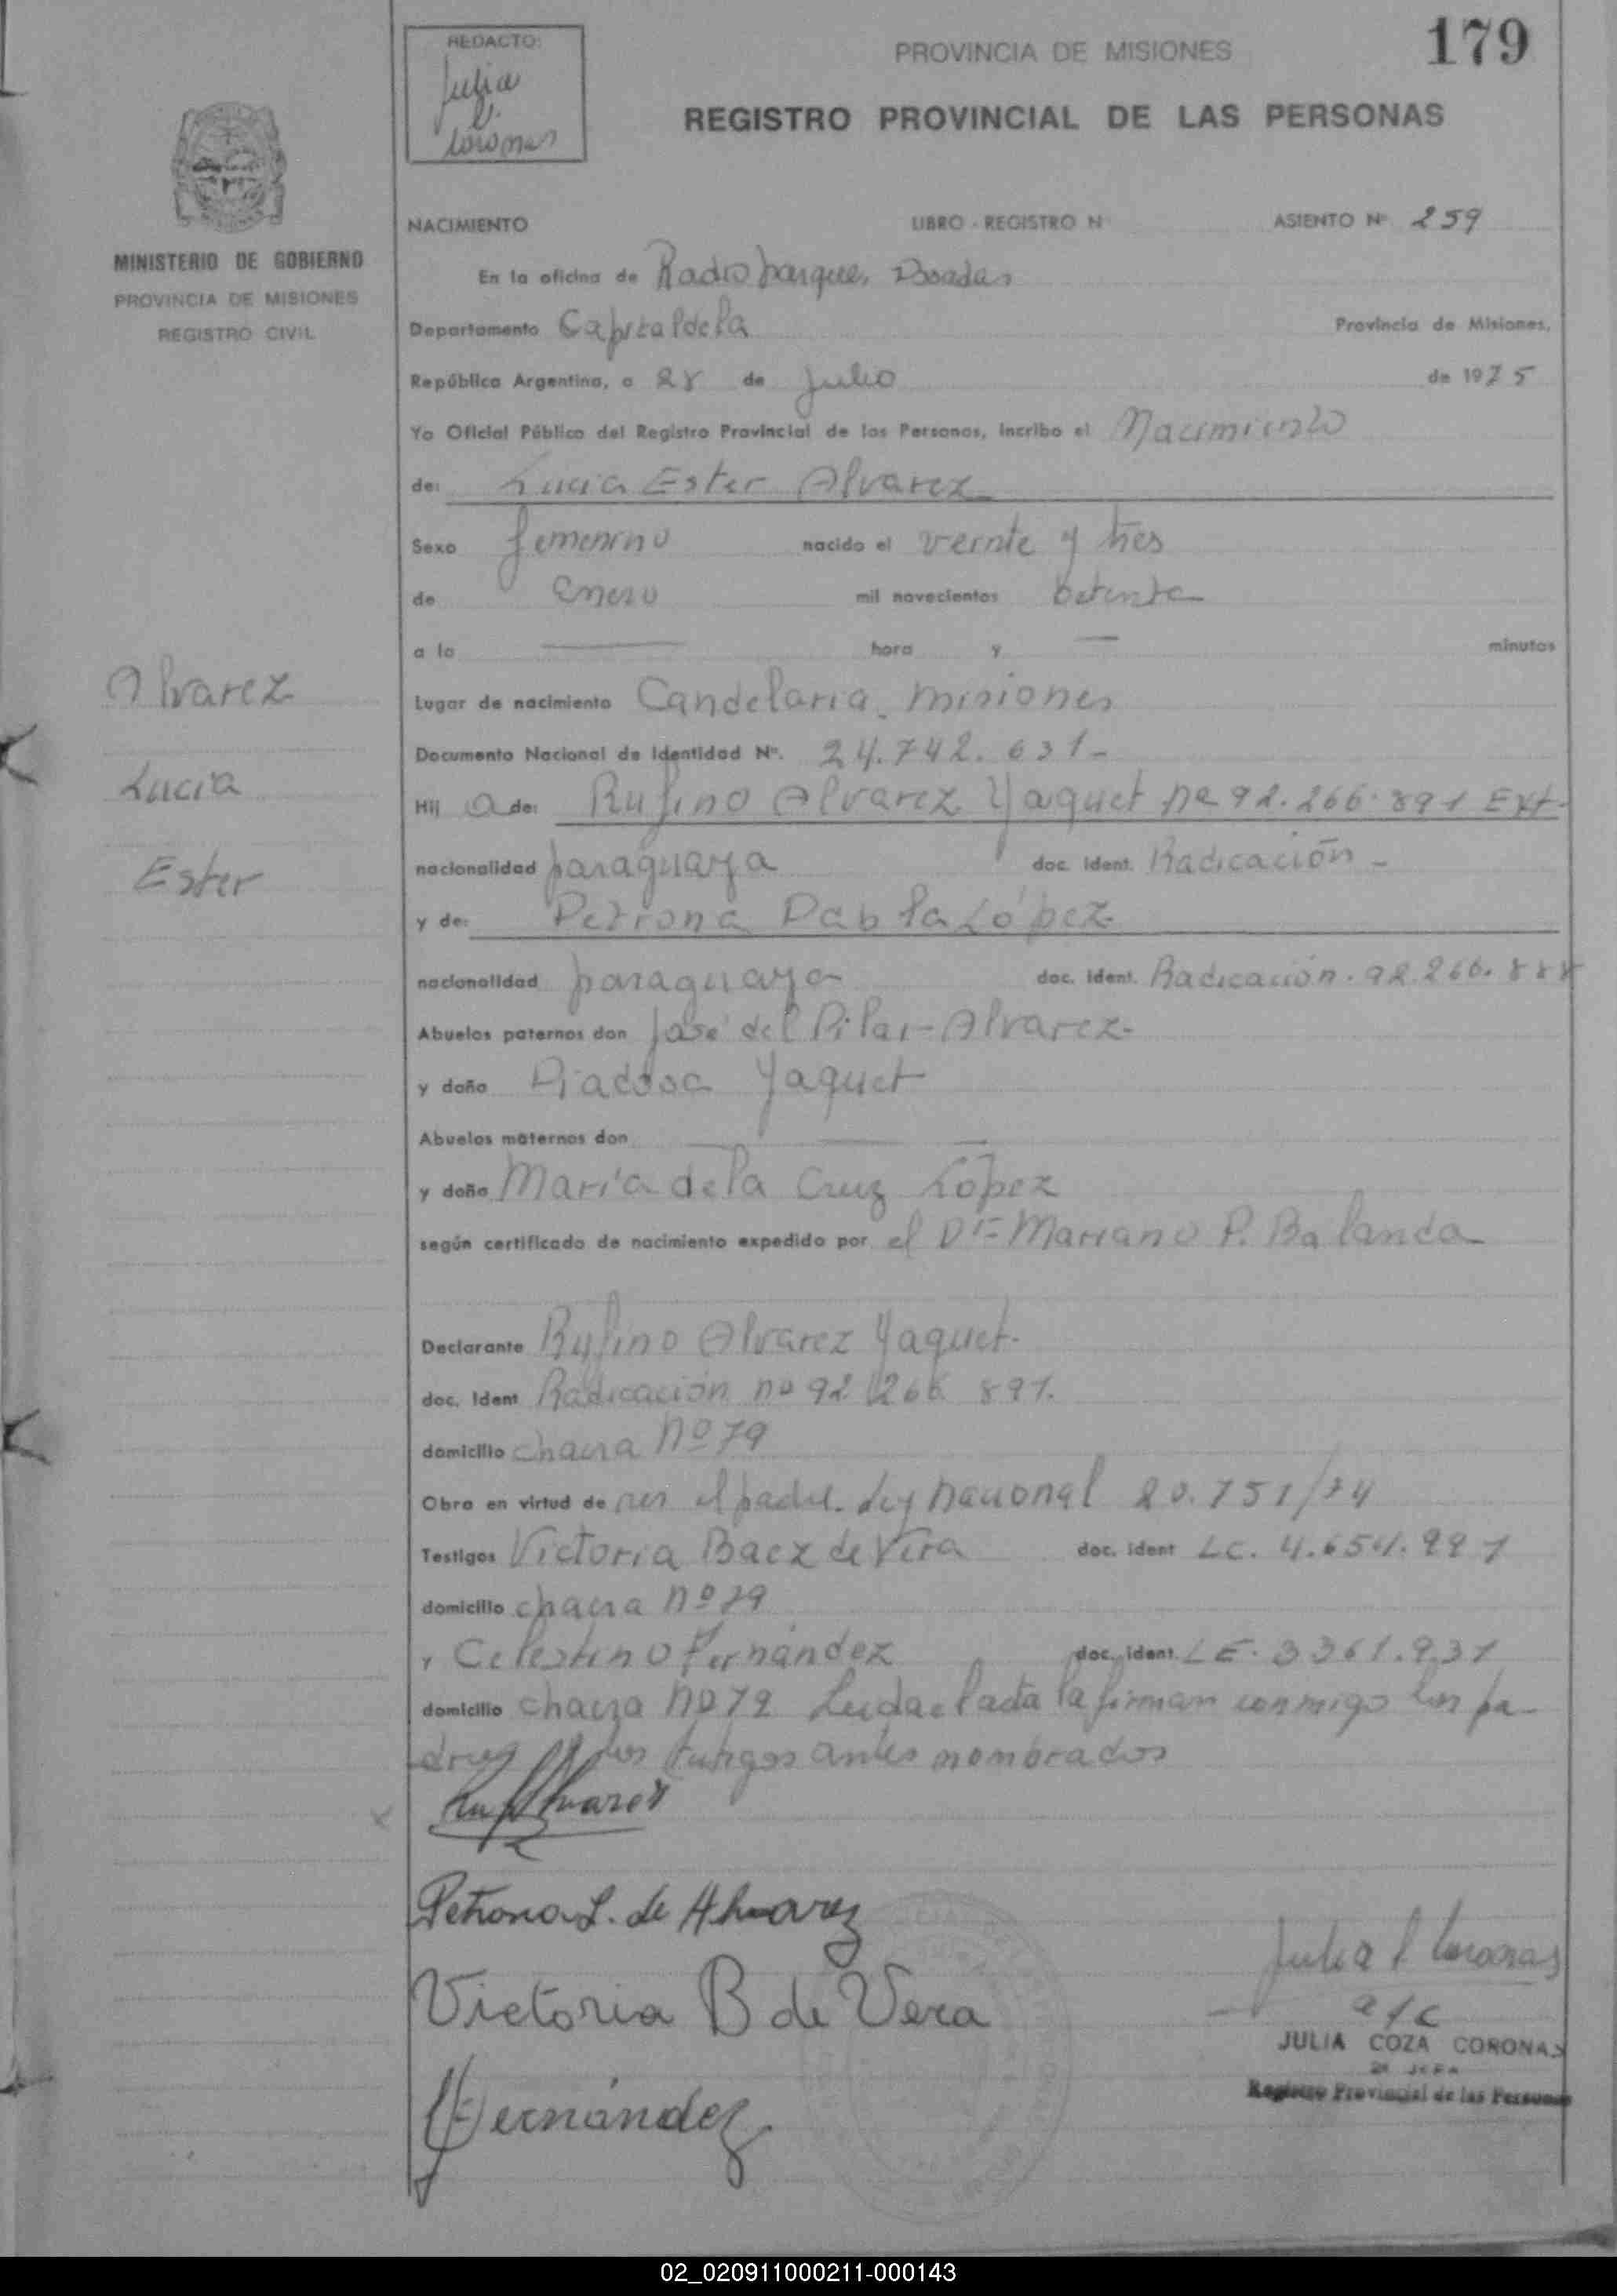 179
REDACTO:
Julia
Coronas
PROVINCIA DE MISIONES
REGISTRO PROVINCIAL DE LAS PERSONAS
MINISTERIO DE GOBIERNO
PROVINCIA DE MISIONES
REGISTRO CIVIL
Alvarez
Lucia
Ester
NACIMIENTO LIBRO - REGISTRO N ASIENTO Nº 259
En la oficina de Radio parque, Posadas
Departamento Capital de la Provincia de Misiones,
República Argentina, a 28 de Julio de 1975
Yo Oficial Público del Registro Provincial de las Personas, incribo el Nacimiento
de: Lucia Ester Alvarez
Sexo femenino nacido el veinte y tres
de Enero mil novecientos setenta
a la hora y minutos
Lugar de nacimiento Candelaria. misiones
Documento Nacional de Identidad Nº. 24.742.631-
Hij a de: Rufino Alvarez Yaquet nº 92.266.891 Ext.
nacionalidad paraguaya doc. ident. Radicación -
y de: Petrona Pabla López
nacionalidad paraguaya doc. ident. Radicación. 92.266.888
Abuelos paternos don José del Pilar - Alvarez-
y doña Piadosa Yaquet
Abuelos maternos don
y doña María de la Cruz López
según certificado de nacimiento expedido por el Dr- Mariano P. Balanda
Declarante Rufino Alvarez Yaquet-
doc. Ident Radicación nº 92 266 891.
domicilio chacra Nº 79
Obra en virtud de ser el padre. Ley nacional 20.751/74
Testigos Victoria Baez de Vera doc. ident LC. 4.654.991
domicilio chacra nº 79
y Celestino Fernández doc. ident. LE. 3361.931
domicilio chacra nº 79 Leida el acta la firman conmigo los pa-
dres y los testigos antes nombrados
Petrona L. de Alvarez
Victoria B de Vera
Fernández
Julia Coronas
a/c
JULIA COZA CORONAS
JEFA
Registro Provincial de las Personas
02_020911000211-000143